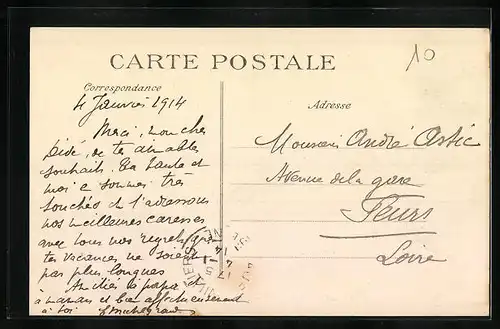 10
CARTE POSTALE
Correspondance
Adresse
4 Janvier 1914
Merci, mon cher
Dédé, de tes aimables
souhaits. Ta tante et
moi sommes très
touchés et t'adressons
nos meilleures caresses
avec tous nos regrets que
tes vacances ne soient
pas plus longues
Amitiés à papa,
à maman et bien affectueusement
à toi
Monsieur André Astic
Avenue de la gare
Feurs
Loire